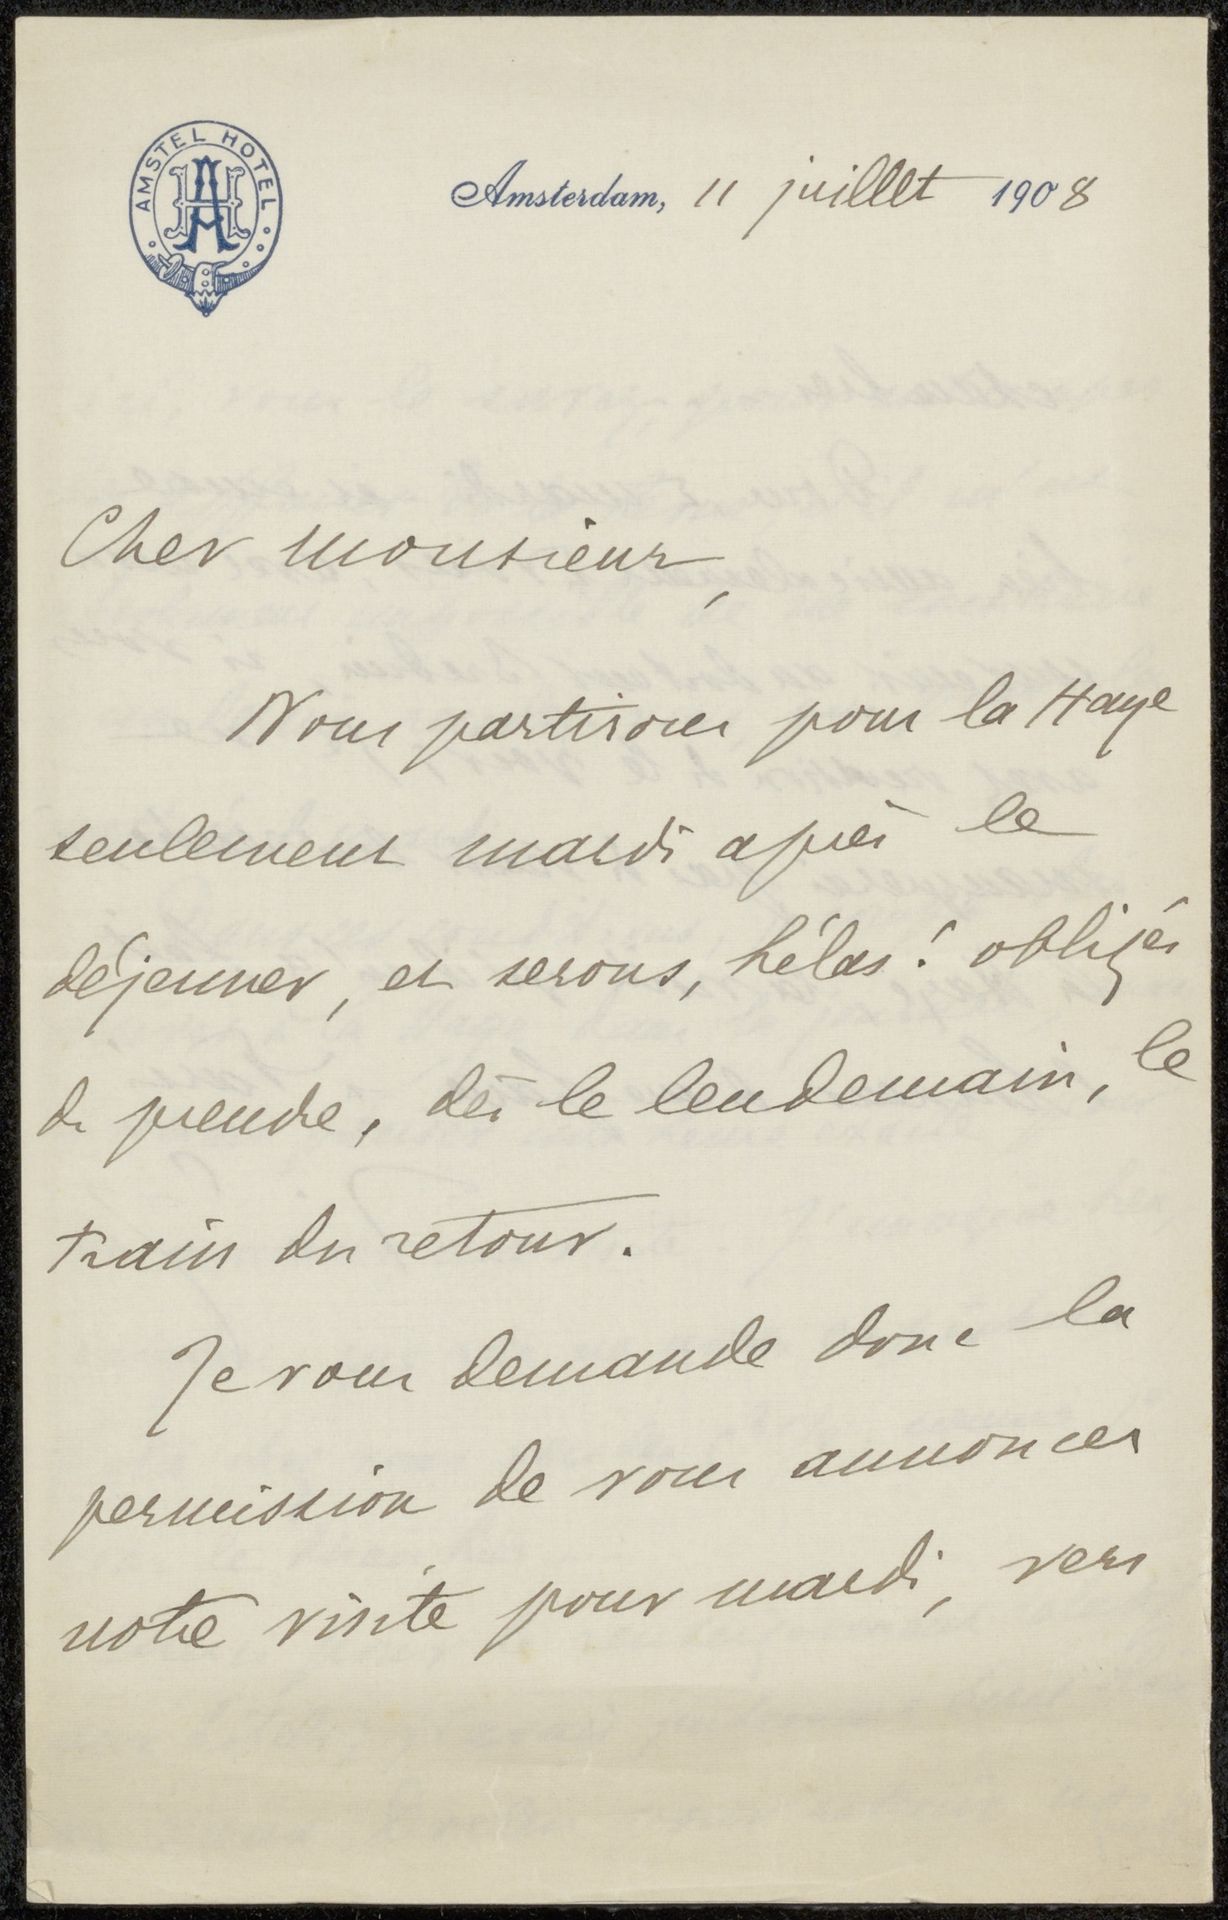 AMSTEL HOTEL
Amsterdam, 11 juillet 1908
Cher monsieur,
Nous partirons pour la Haye
seulement mardi après le
déjeuner, et serons, hélas! obligés
de prendre, dès le lendemain, le
train du retour.
Je vous demande donc la
permission de vous annoncer
notre visite pour mardi, vers